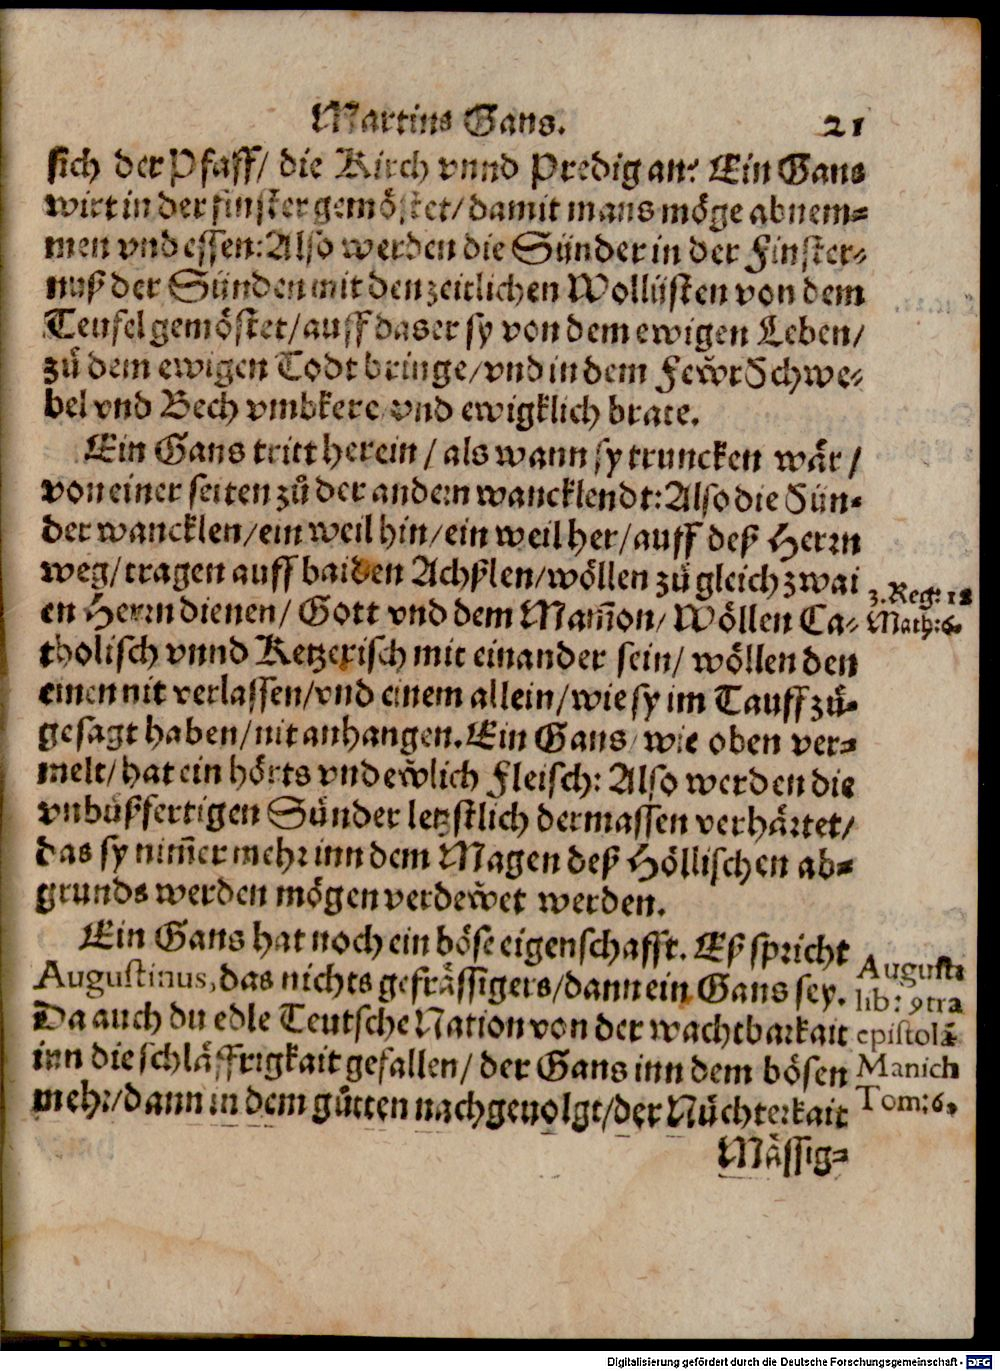 Martins Gans. 21
sich der Pfaff/ die Kirch vnnd Predig an: Ein Gans
wirt in der finster gemöstet/ damit mans möge abnem⸗
men vnd essen: Also werden die Sünder in der Finster⸗
nuß der Sünden mit den zeitlichen Wollüsten von dem
Teufel gemöstet/ auff das er sy von dem ewigen Leben/
zuͦ dem ewigen Todt bringe/ vnd in dem Fewͤr Schwe⸗
bel vnd Bech vmbkere vnd ewigklich brate.
Ein Gans tritt herein/ als wann sy truncken wär/
von einer seiten zuͦ der andern wancklendt: Also die Sün⸗
der wancklen/ ein weil hin/ ein weil her/ auff deß Herrn
weg/ tragen auff baiden Achßlen/ wöllen zuͦ gleich zwai
en Herrn dienen/ Gott vnd dem Mam̄on/ Wöllen Ca⸗
tholisch vnnd Ketzerisch mit einander sein/ wöllen den
einen nit verlassen/ vnd einem allein/ wie sy im Tauff zuͦ⸗
gesagt haben/ nit anhangen. Ein Gans/ wie oben ver⸗
melt/ hat ein hörts vnd ewͤlich Fleisch: Also werden die
vnbuͦßfertigen Sünder letzstlich dermassen verhärtet/
das sy nim̄er mehr inn dem Magen deß Höllischen ab⸗
grunds werden mögen verdewͤet werden.
Ein Gans hat noch ein böse eigenschafft. Eß spricht
Augustinus, das nichts gefrässigers/ dann ein Gans sey.
Da auch du edle Teutsche Nation von der wachtbarkait
inn die schläffrigkait gefallen/ der Gans inn dem bösen
mehr/ dann in dem guͦtten nachgeuolgt/ der Nüchterkait
Mässig⸗
3. Reg: 18
Math: 6.
Augusti
lib: ꝯtra
epistolā
Manich
Tom: 6.
Digitalisierung gefördert durch die Deutsche Forschungsgemeinschaft - DFG